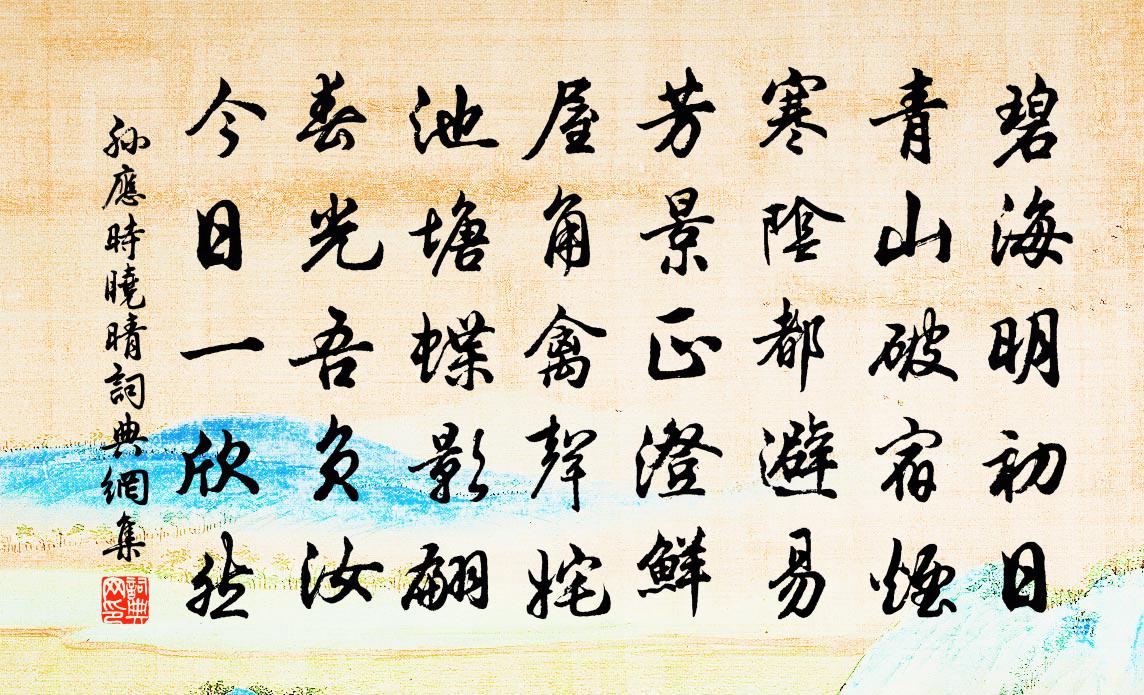 碧海明初日
青山破宿煙
寒陰都避易
芳景正澄鮮
屋角禽聲姹
池塘蝶影翩
春光吾負汝
今日一欣然
孫應時曉晴詞典網集
詞典網印